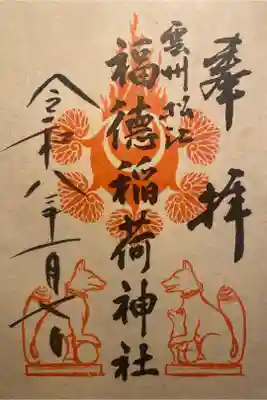 奉拝
雲州松江
福徳稲荷神社
令和八年一月六日